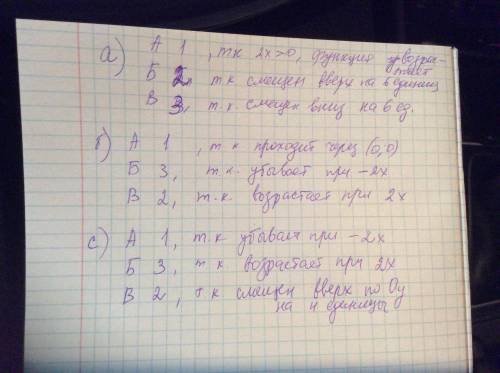 а) А 1, т.к 2x>0, функция возрас-
тает
Б 2, т к смещен вверх на 6 единиц
В 3, т.к. смещен вниз на 6 ед.
б) А 1, т.к проходит через (0,0)
Б 3, т.к. убывает при -2x
В 2, т.к. возрастает при 2x
с) А 1, т.к убывает при -2x
Б 3, т к возрастает при 2x
В 2, т к смещен вверх по Oy
на 4 единицы